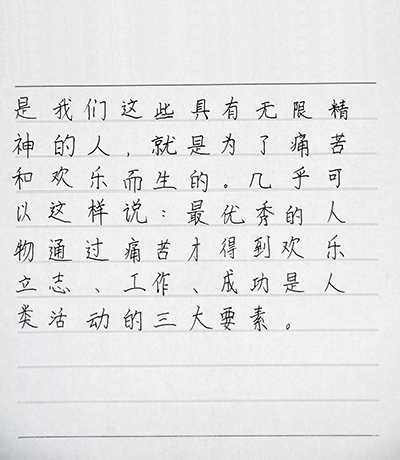 是我们这些具有无限精
神的人，就是为了痛苦
和欢乐而生的。几乎可
以这样说：最优秀的人
物通过痛苦才得到欢乐
立志、工作、成功是人
类活动的三大要素。